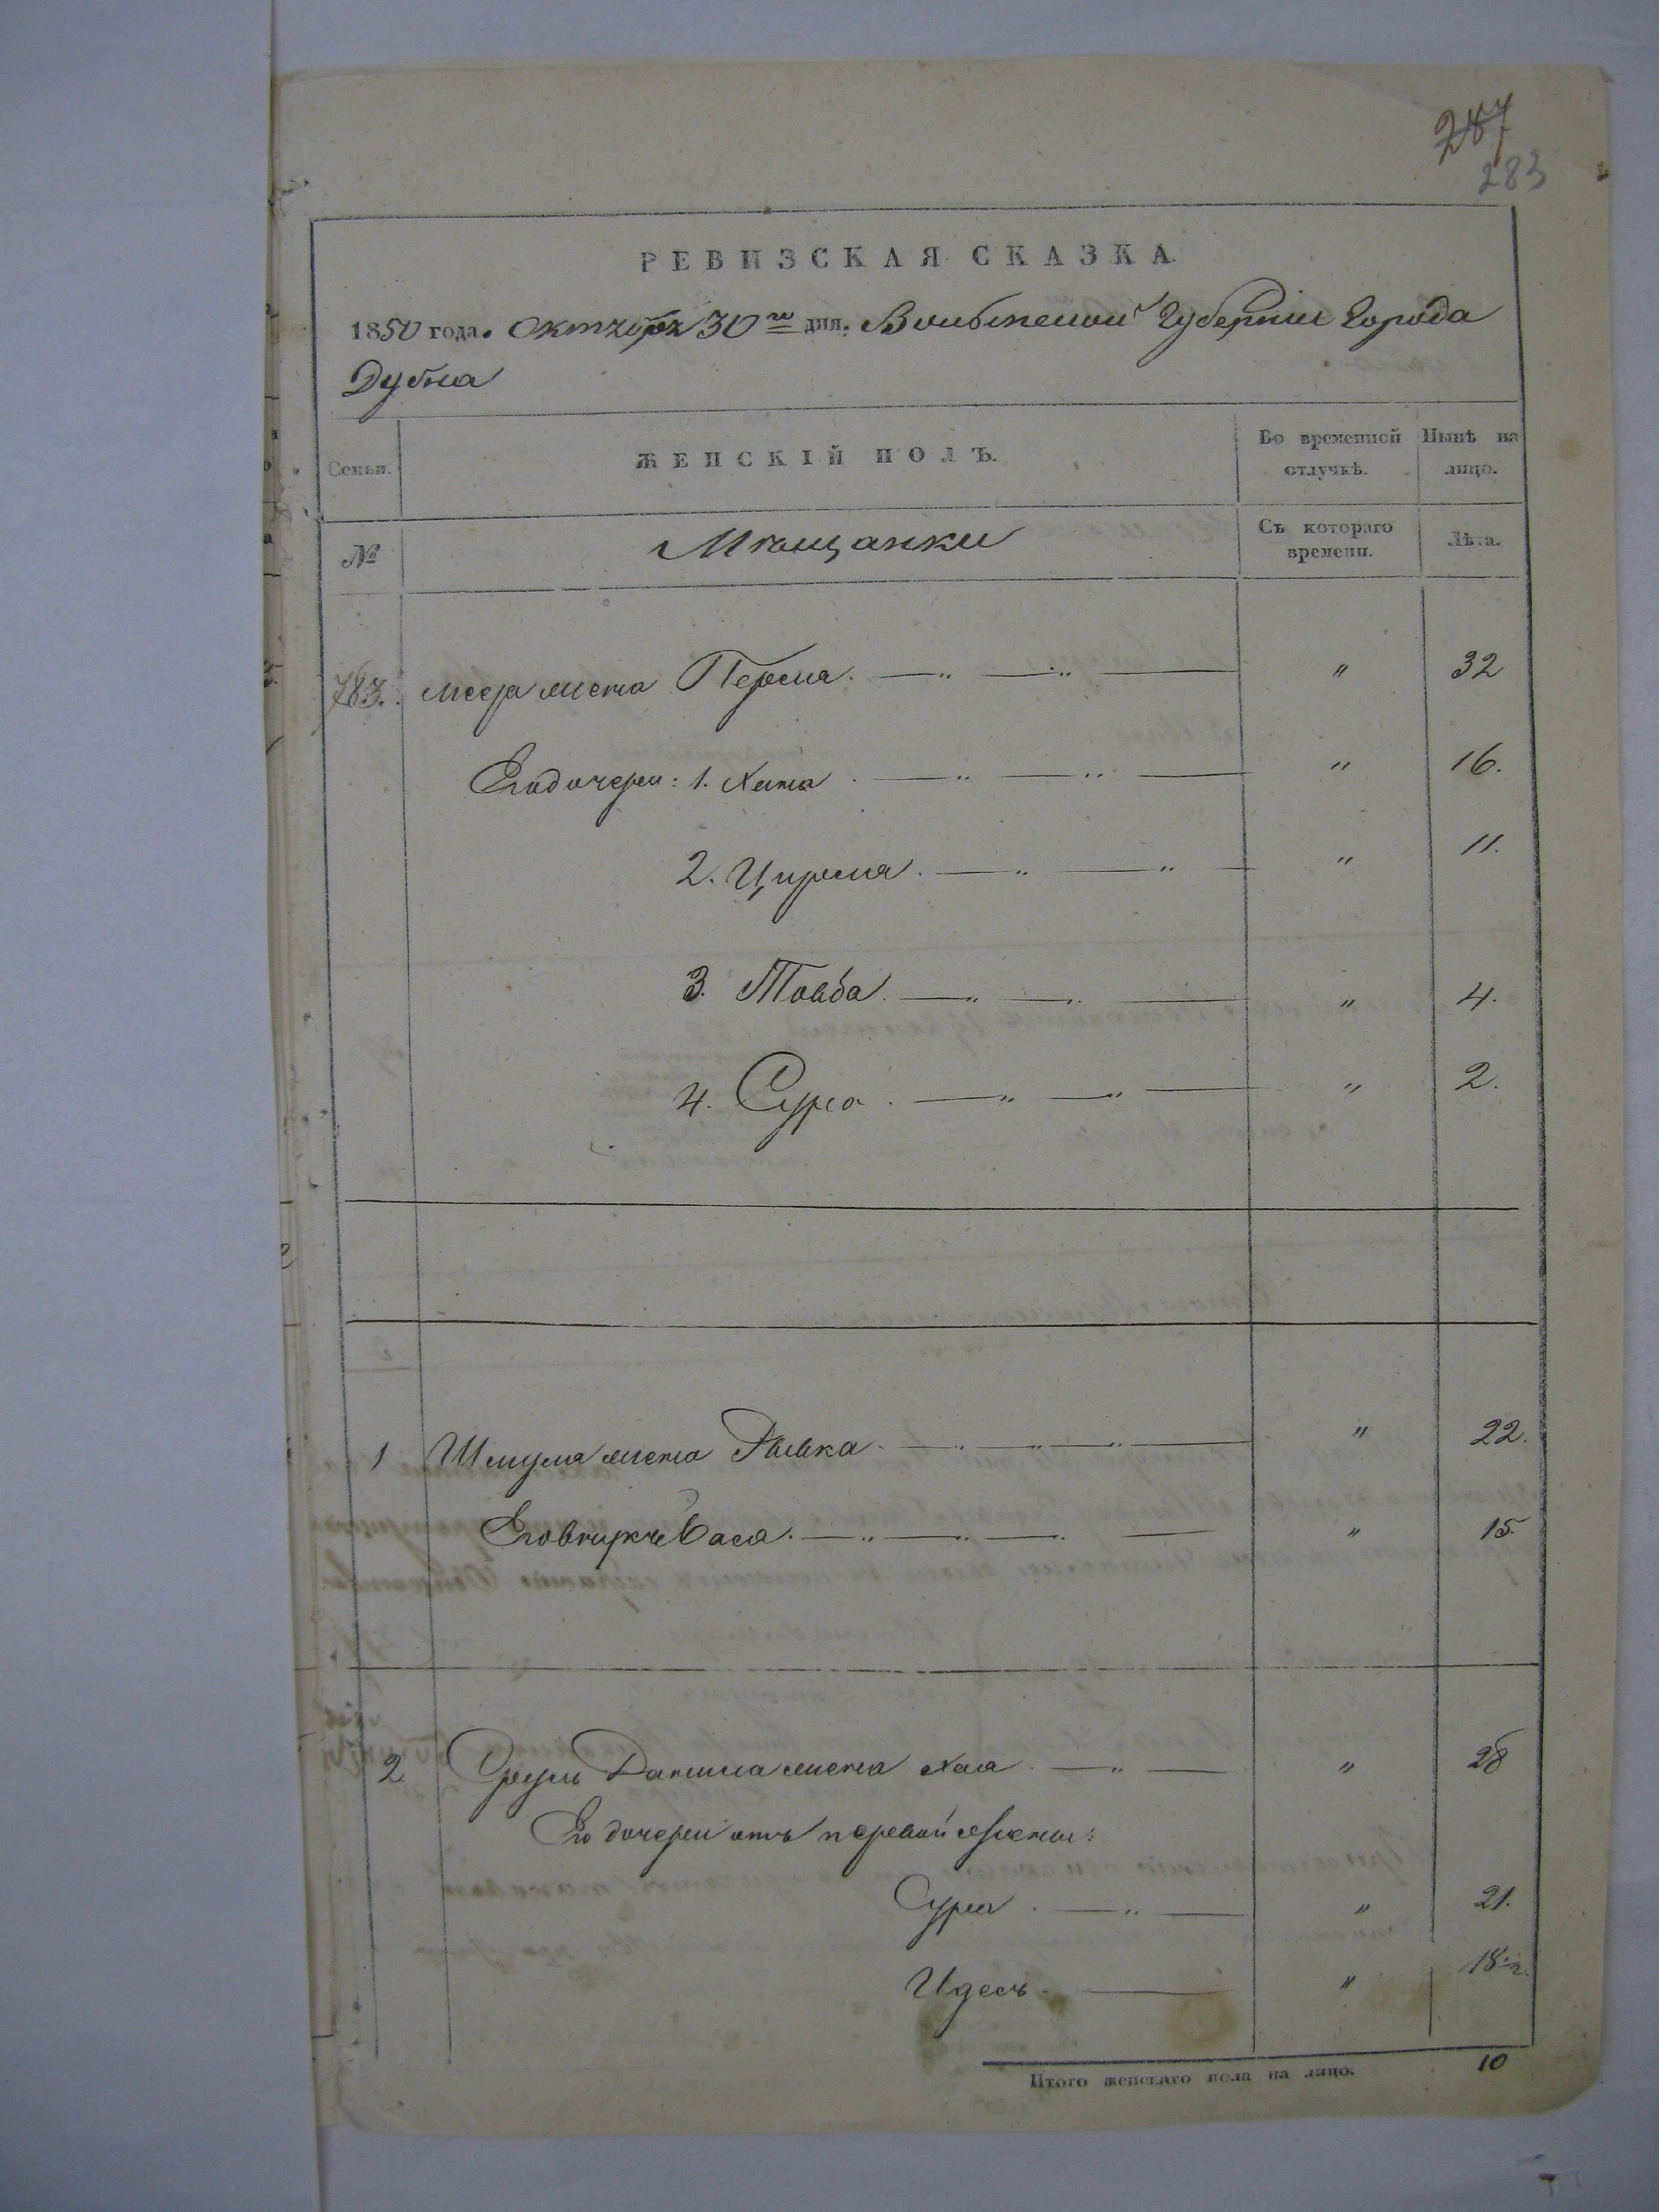 287
283
РЕВИЗСКАЯ СКАЗКА.
1850 года. Октября 30го дня. Волынской Губернии Города
Дубна
Семьи. ЖЕНСКІЙ ПОЛЪ. Во временной отлучкѣ. Нынѣ на лицо.
№ Мѣщанки Съ котораго времени. Лѣта.
783. жена Перля. " 32
Его дочери: 1. Хана " 16.
2. Цирля. " 11.
3. Товба. " 4.
4. Сура. " 2.
1 Шмуля жена Рывка. " 22.
Его внучка Бася. " 15.
2 Сруль Данила жена Хая " 28
Его дочери отъ первой жены:
Сура " 21.
Идесь. " 18
Итого женскаго пола на лицо. 10